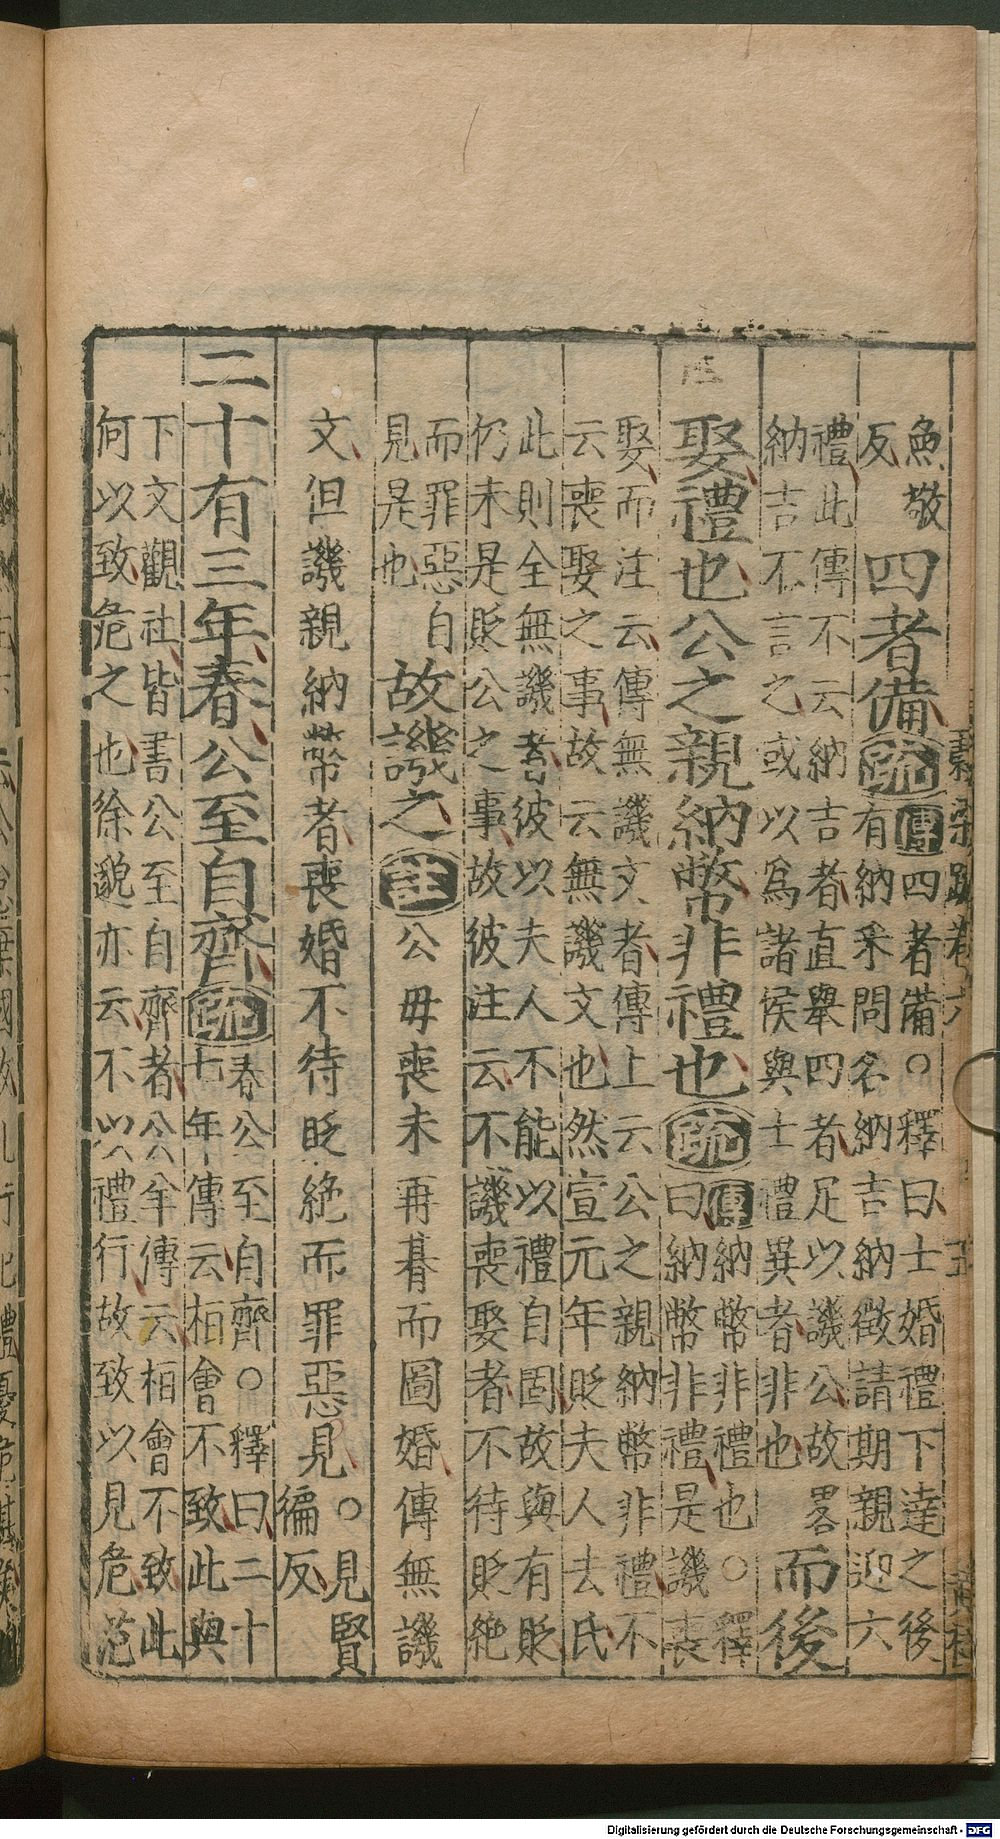 魚敬
反
四者備
疏
傳四者備○釋曰士婚禮下達之後
有納釆問名納吉納徵請期親迎六
禮此傳不云納吉者直舉四者足以譏公故畧
納吉不言之或以爲諸侯與士禮異者非也
而後
娶禮也公之親納幣非禮也
疏
傳納幣非禮也○釋
曰納幣非禮是譏喪
娶而注云傳無譏文者傳上云公之親納幣非禮不
云喪娶之事故云無譏文也然宣元年貶夫人去氏
此則全無譏者彼以夫人不能以禮自固故與有貶
仍未是貶公之事故彼注云不譏喪娶者不待貶絶
而罪惡自
見是也
故譏之
注
公毋喪未再朞而圖婚傳無譏
文但譏親納幣者喪婚不待貶絶而罪惡見○見賢
徧反
二十有三年春公至自齊
疏
春公至自齊○釋曰二十
七年傳云桓會不致此與
下文觀社皆書公至自齊者公羊傳云桓會不致此
何以致危之也徐邈亦云不以禮行故致以見危范
Digitalisierung gefördert durch die Deutsche Forschungsgemeinschaft - DFG